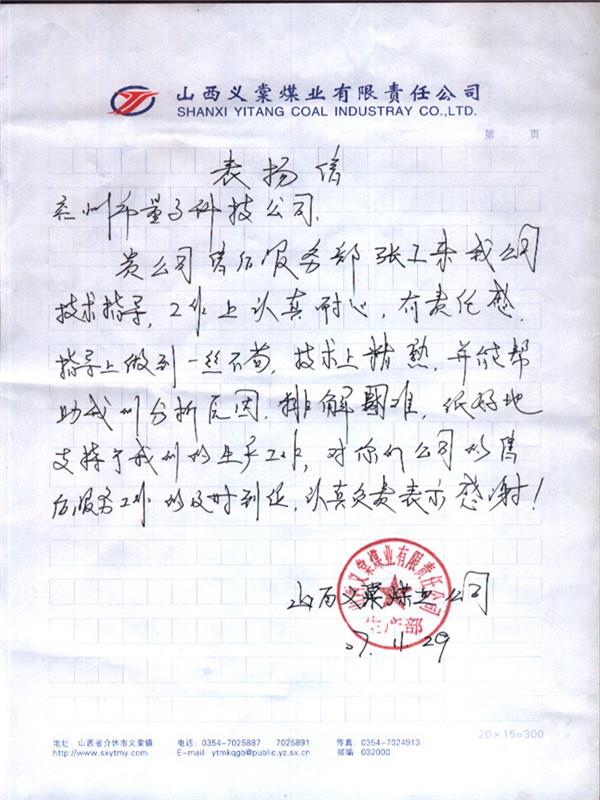 山西义棠煤业有限责任公司
SHANXI YITANG COAL INDUSTRAY CO.,LTD.
第 页
表扬信
兰州市量子科技公司.
贵公司售后服务部张工来我公司
技术指导，工作上认真耐心，有责任感.
指导上做到一丝不苟，技术上精熟，并能帮
助我们分析原因.排解困难，很好地
支持了我们的生产工作，对你们公司的售
后服务工作的及时到位，认真负责表示感谢！
山西义棠煤业有限责任公司
生产部
山西义棠煤业公司
07.11.29
20×15=300
地址：山西省介休市义棠镇 电话：0354-7025887 7025891 传真：0354-7024913
http://www.sxytmy.com E-mail：ytmkqgb@public.yz.sx.cn 邮编：032000